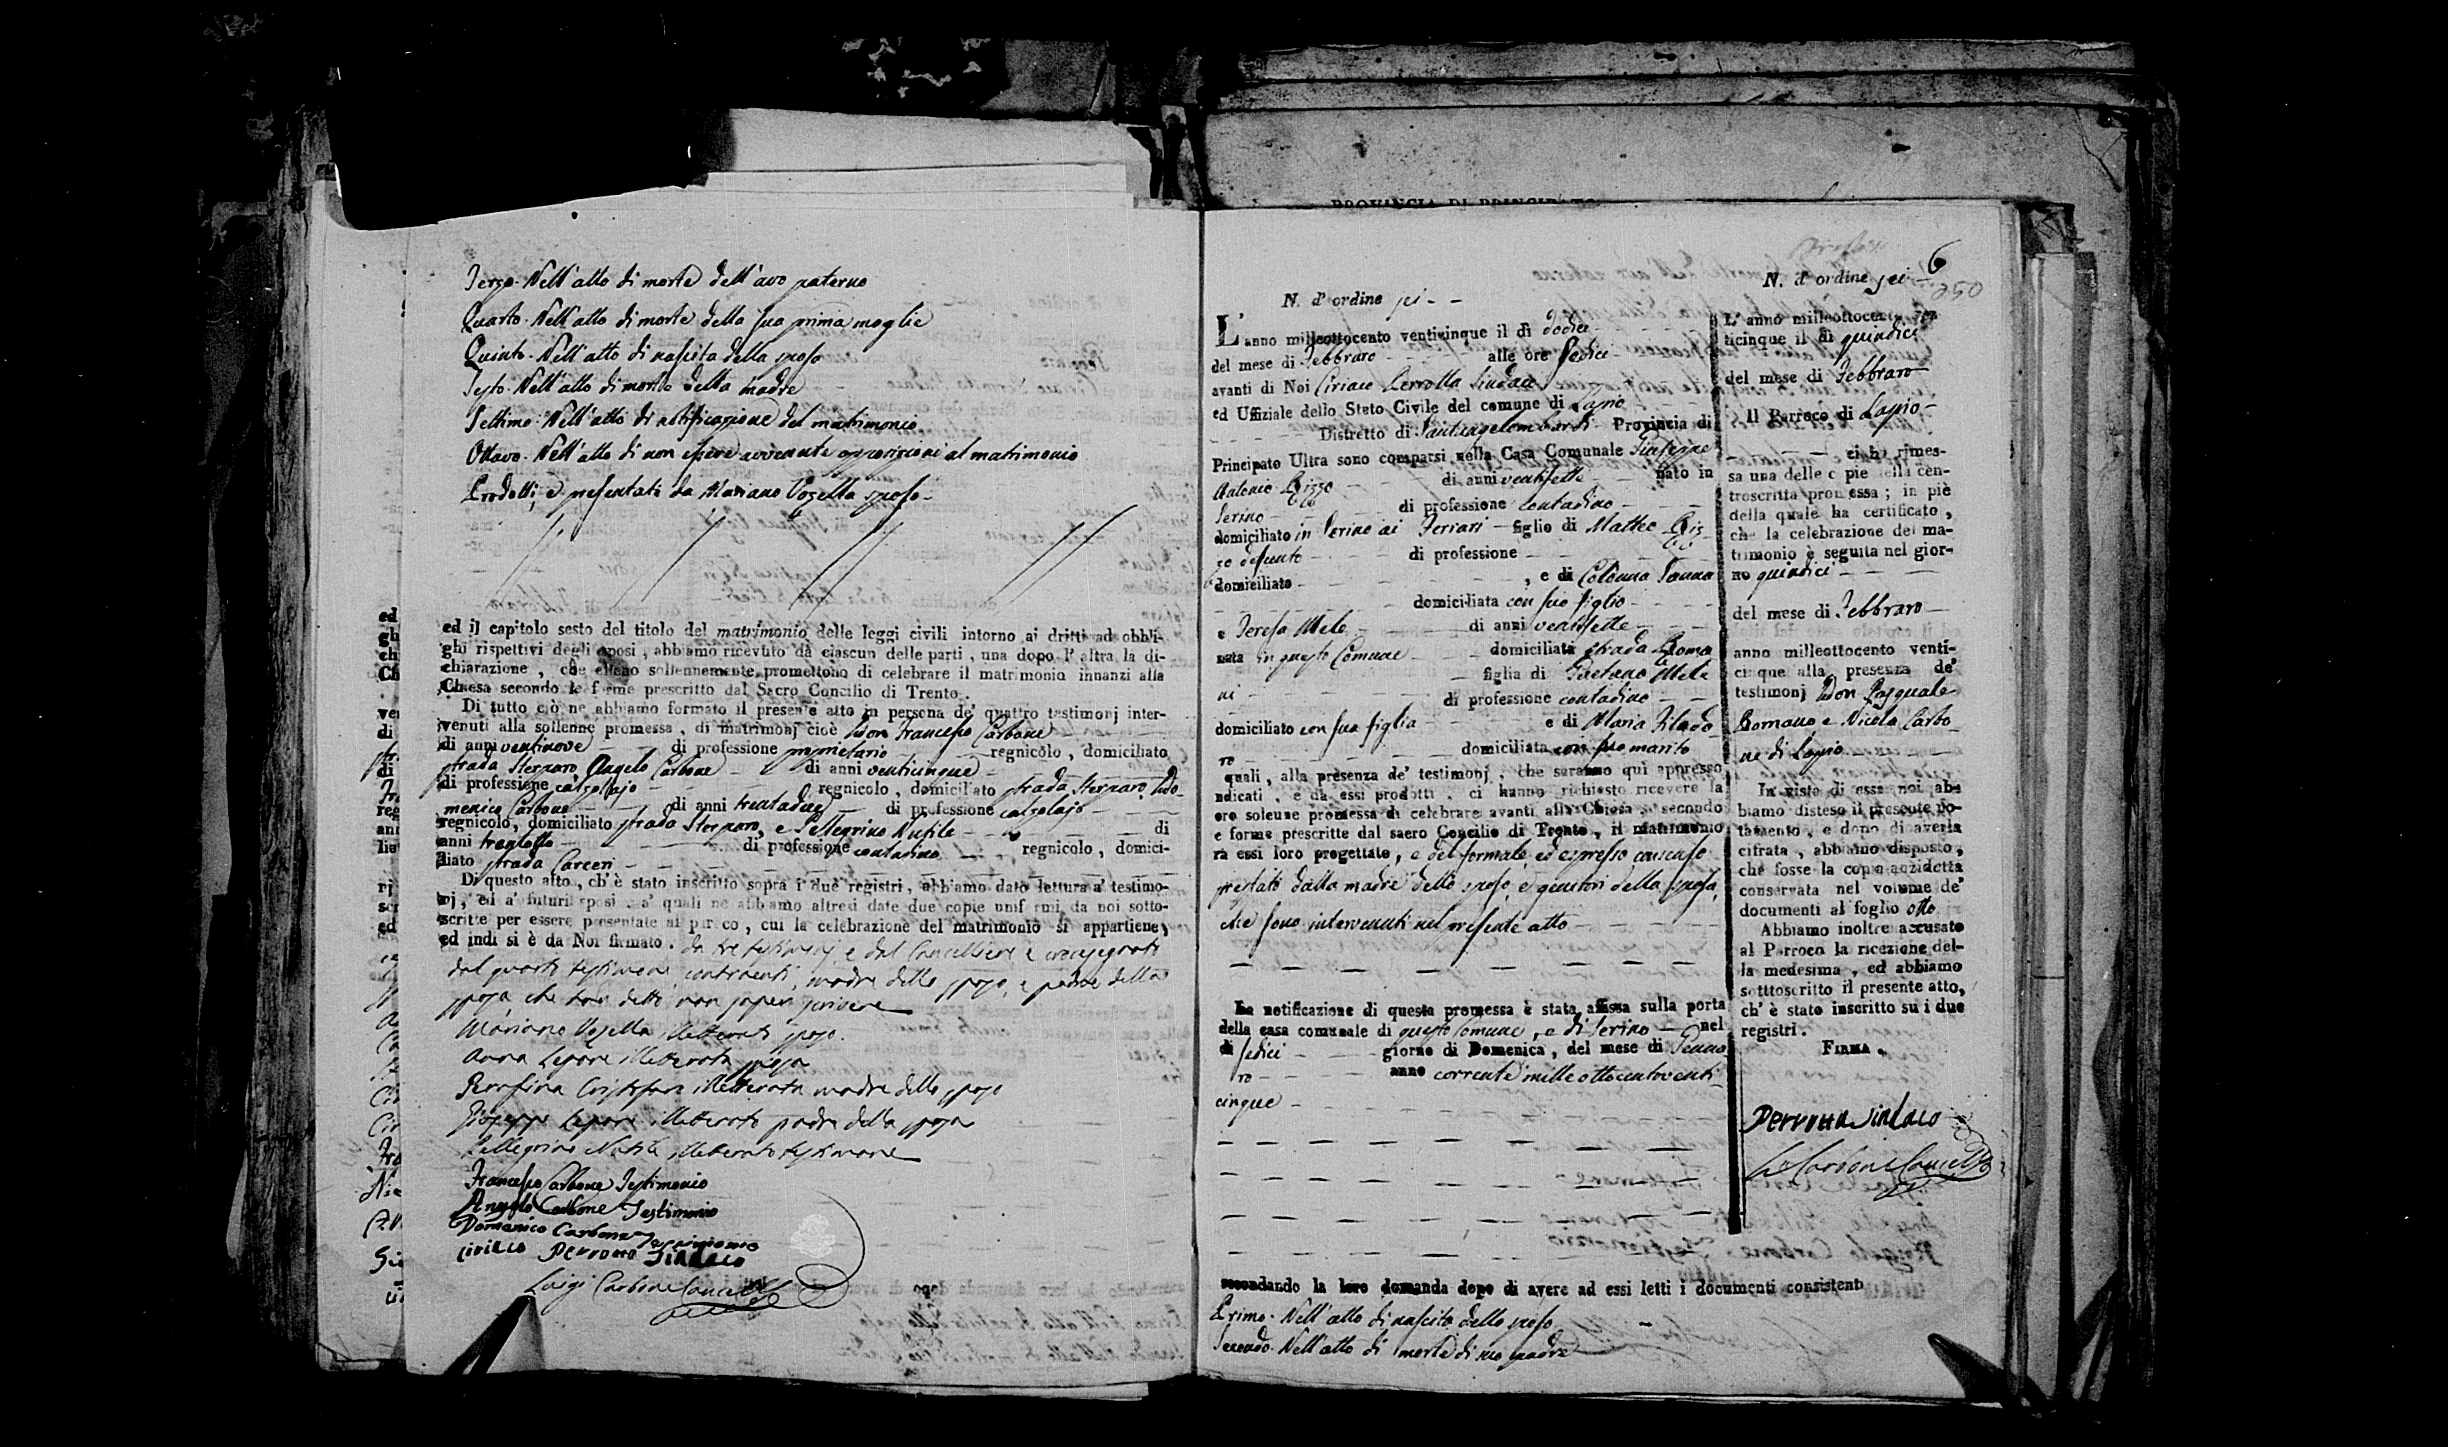 Terzo. Nell'atto di morte dell'avo paterno
Quarto. Nell'atto di morte della sua prima moglie
Quinto. Nell'atto di nascita della sposa
Sesto. Nell'atto di morte della madre
Settimo. Nell'atto di notificazione del matrimonio
Ottavo. Nell'atto di non essere avvenute opposizioni al matrimonio
Prodotti, e presentati da Mariano Vozella sposo
ed il capitolo sesto del titolo del matrimonio delle leggi civili intorno ai dritti ad obbli-
ghi rispettivi degli sposi, abbiamo ricevuto da ciascun delle parti, una dopo l'altra la di-
chiarazione, che elleno sollennemente promettono di celebrare il matrimonio innanzi alla
Chiesa secondo le forme prescritto dal Sacro Concilio di Trento.
Di tutto ciò ne abbiamo formato il presente atto in persona de' quattro testimonj inter-
venuti alla sollenne promessa, di matrimonj cioè Don Francesco Carbone
di anni ventinove di professione proprietario regnicolo, domiciliato
strada Sterparo, Angelo Carbone di anni venticinque
di professione calzolajo regnicolo, domiciliato strada Sterparo, Do-
menico Carbone di anni trentadue di professione calzolajo
regnicolo, domiciliato strada Sterparo, e Pellegrino Nutile di
anni trentotto di professione contadino regnicolo, domici-
liato strada Carceri
Di questo atto, ch'è stato inscritto sopra i due registri, abbiamo dato lettura a' testimo-
nj, ed a' futuri sposi a' quali ne abbiamo altresì date due copie uniformi da noi sotto-
scritte per essere presentate al parroco, cui la celebrazione del matrimonio si appartiene,
ed indi si è da Noi firmato. da tre testimonj, e dal Cancelliere e crocesegnato
dal quarto testimone, contraenti, madre dello sposo, e padre della
sposa, che han detto non saper scrivere
Mariano Vozella illetterato sposo.
Anna Lepore illetterata sposa
illetterata madre dello sposo
Giuseppe Lepore illetterato padre della sposa
Pellegrino Nutile illetterato testimone
Francesco Carbone Testimonio
Angelo Carbone Testimonio
Domenico Carbone Testimonio
Ciriaco Perrotta Sindaco
Luigi Carbone Cancell
6
250
N. d'ordine sei
L'anno milleottocento venticinque il dì dodici
del mese di Febbraro alle ore sedici
avanti di Noi Ciriaco Perrotta Sindaco
ed Uffiziale dello Stato Civile del comune di Lapio
Distretto di Santangelombardi Provincia di
Principato Ultra sono comparsi nella Casa Comunale Giuseppe
Antonio Rizzo di anni ventisette nato in
Serino di professione contadino
domiciliato in Serino ai Ferrari figlio di Matteo Riz-
zo defunto di professione
domiciliato , e di Colonna
domiciliata con suo figlio
e Teresa Mele di anni ventisette
nata in questo Comune domiciliata strada Roma
ni figlia di Gaetano Mele
di professione contadino
domiciliato con sua figlia e di Maria Filado-
ro domiciliata con suo marito
quali, alla presenza de' testimonj, che saranno qui appresso
ndicati, e da essi prodotti, ci hanno richiesto ricevere la
oro solenne promessa di celebrare avanti alla Chiesa, secondo
e forme prescritte dal sacro Concilio di Trento, il matrimonio
ra essi loro progettato, e del formale, ed espresso consenso
prestato dalla madre dello sposo, e genitori della sposa
che sono intervenuti nel presente atto
La notificazione di questa promessa è stata affissa sulla porta
della casa comunale di questo Comune, e di Serino nel
dì sedici giorno di Domenica, del mese di Genna
ro anno corrente mille ottocentoventi-
cinque
secondando la loro domanda dopo di avere ad essi letti i documenti consistenti
Primo. Nell'atto di nascita dello sposo
Secondo. Nell'atto di morte di suo padre
N. d'ordine sei
L'anno milleottocento ven
ticinque il dì quindici
del mese di Febbraro
Il Parroco di Lapio
ci ha rimes-
sa una delle copie della con-
troscritta promessa; in piè
della quale ha certificato,
che la celebrazione del ma-
trimonio è seguita nel gior-
no quindici
del mese di Febbraro
anno milleottocento venti-
cinque alla presenza de'
testimonj Don Pasquale
Romano e Nicola Carbo
ne di Lapio
In visto di essa noi ab-
biamo disteso il presente no-
tamento, e dopo di averla
cifrata, abbiamo disposto,
che fosse la copia anzidetta
conservata nel volume de'
documenti al foglio otto
Abbiamo inoltre accusato
al Parroco la ricezione del-
la medesima, ed abbiamo
sotttoscritto il presente atto,
ch'è stato inscritto su i due
registri.
FIRMA.
Perrotta Sindaco
L Carbone Cancell